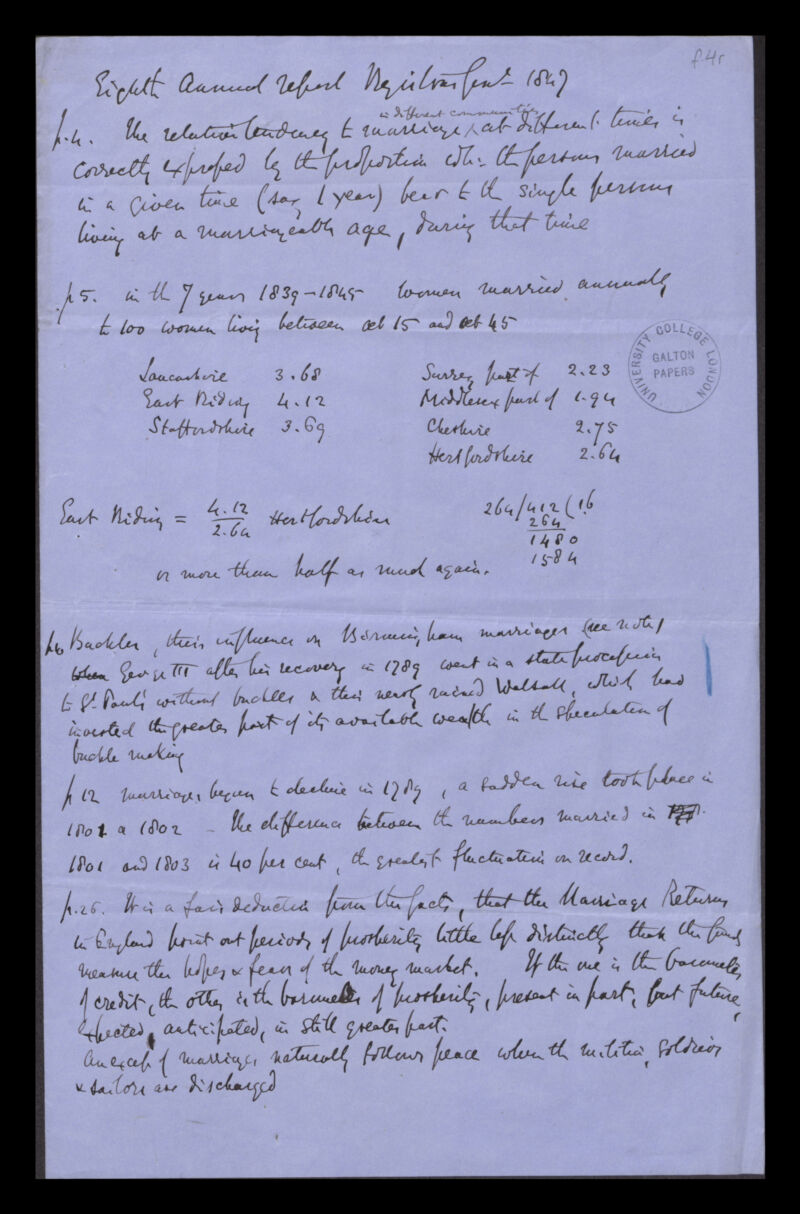 f. 4r
Eighth Annual report Registrar Genl 1847
p. 4. The relative tendency to marriage ^ in different communities at different times is
correctly expressed by the proportion wh: the persons married
in a given time (say 1 year) bear to the single persons
living at a marriageable age, during that time
p 5. in the 7 years 1839-1845 women married annually
to 100 women living between aet 15 and aet 45
Lancashire 3.68 Surrey part of 2.23
East Riding 4.12 Middlesex part of 1.94
Staffordshire 3.69 Cheshire 2.75
Hertfordshire 2.64
UNIVERSITY COLLEGE LONDON
GALTON
PAPERS
East Riding = 4.12 / 2.64 Hertfordshire 264/412(1.6
264
1480
1584
or more than half as much again.
p 6 Buckles, their influence on Birmingham marriages (see note)
when George III after his recovery in 1789 went in a state procession
to St Paul's without buckles & this nearly ruined Walsall, which had
invested the greater part of its available wealth in the speculation of
buckle making
p 12 marriages began to decline in 1789, a sudden rise took place in
1801 & 1802 – the difference between the numbers married in
1801 and 1803 is 40 per cent, the greatest fluctuation on record.
p. 26. It is a fair deduction from the facts, that the Marriage Returns
in England point out periods of prosperity little less distinctly than the funds
measure the hopes & fears of the money market. If the one is the barometer
of credit, the other is the barometer of prosperity, present in part, but future,
expected, anticipated, in still greater part.
An excess of marriages naturally follows peace when the militia, soldiers
& sailors are discharged